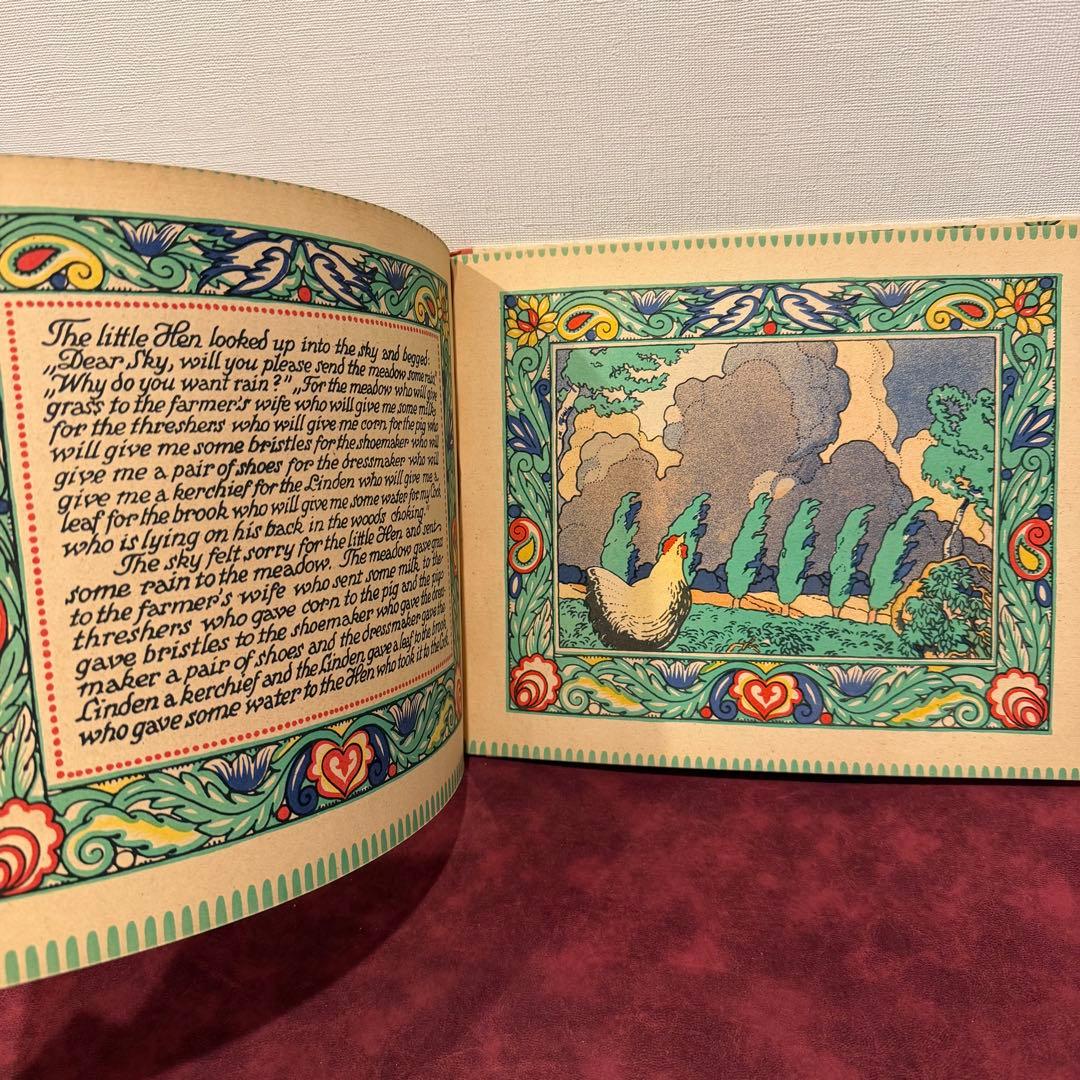 The little Hen looked up into the sky and begged:
„Dear Sky, will you please send the meadow some rain."
„Why do you want rain?" „For the meadow who will give
grass to the farmer's wife who will give me some milk
for the threshers who will give me corn for the pig who
will give me some bristles for the shoemaker who will
give me a pair of shoes for the dressmaker who will
give me a kerchief for the Linden who will give me a
leaf for the brook who will give me some water for my Cock
who is lying on his back in the woods choking."
The sky felt sorry for the little Hen and sent
some rain to the meadow. The meadow gave grass
to the farmer's wife who sent some milk to the
threshers who gave corn to the pig and the pig
gave bristles to the shoemaker who gave the dress-
maker a pair of shoes and the dressmaker gave the
Linden a kerchief and the Linden gave a leaf to the brook
who gave some water to the Hen who took it to the Cock.